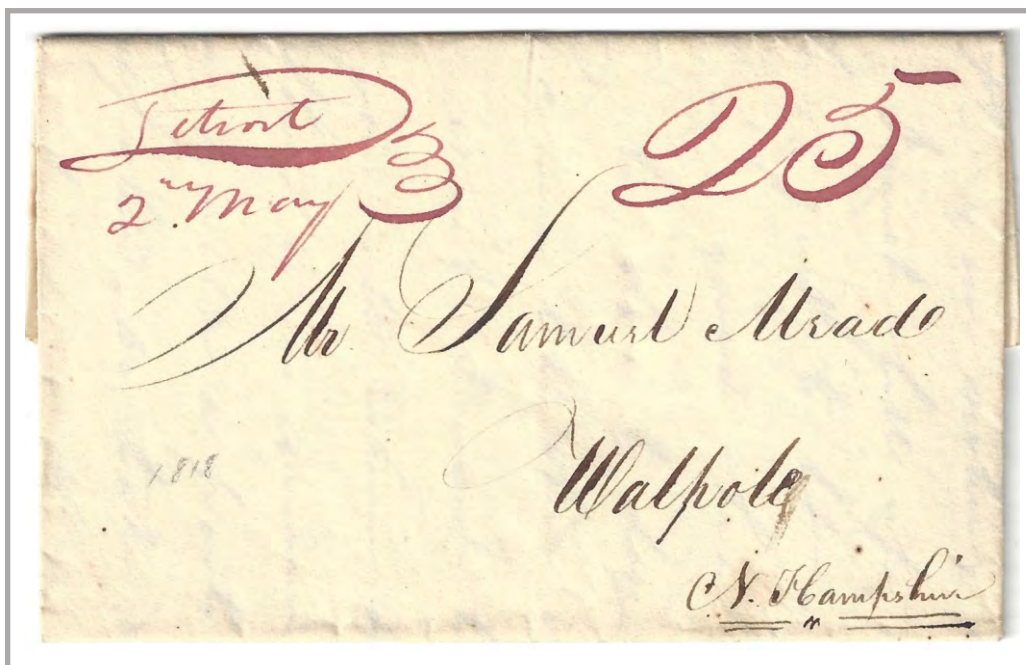 Detroit
2nd May
25
Mr Samuel Mead
Walpole
1818
N. Hampshire